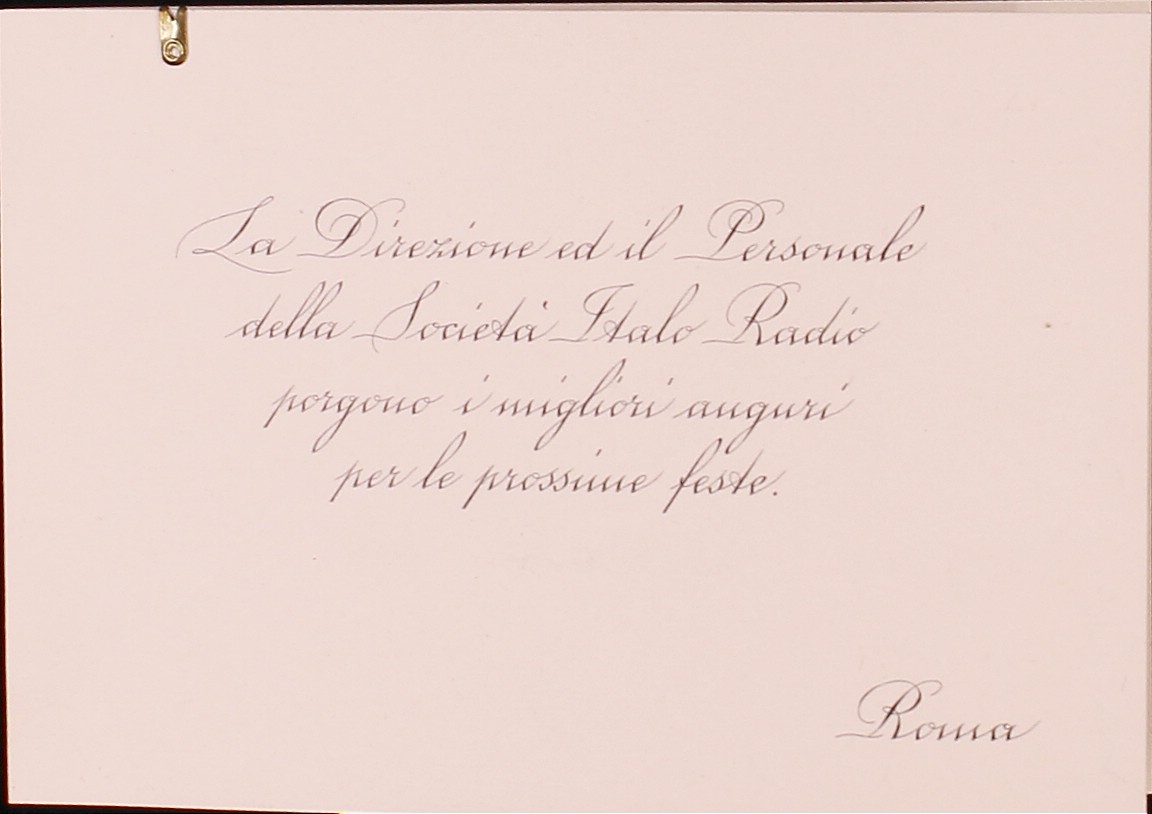 La Direzione ed il Personale
della Società Italo Radio
porgono i migliori auguri
per le prossime feste.
Roma